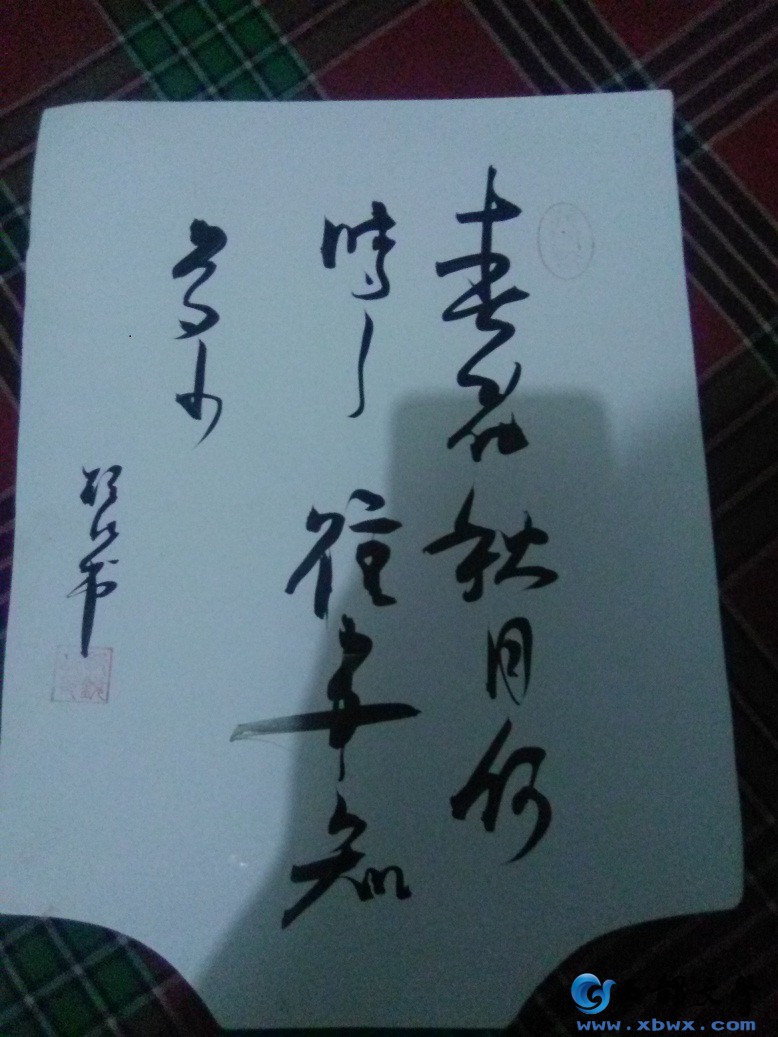 春花秋月何
時了 往事知
多少
书
www.xbwx.com